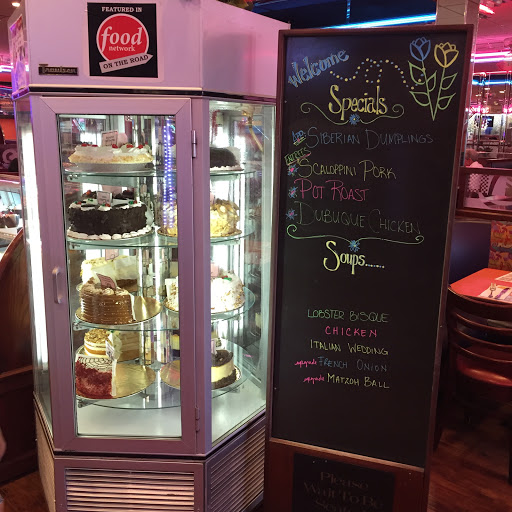 FEATURED IN
food
network
ON THE ROAD
Welcome
Specials
SIBERIAN DUMPLINGS
SCALOPPINI PORK
POT ROAST
DUBUQUE CHICKEN
Soups......
LOBSTER BISQUE
CHICKEN
ITALIAN WEDDING
upgrade FRENCH ONION
upgrade MATZOH BALL
Please
Wait To Be